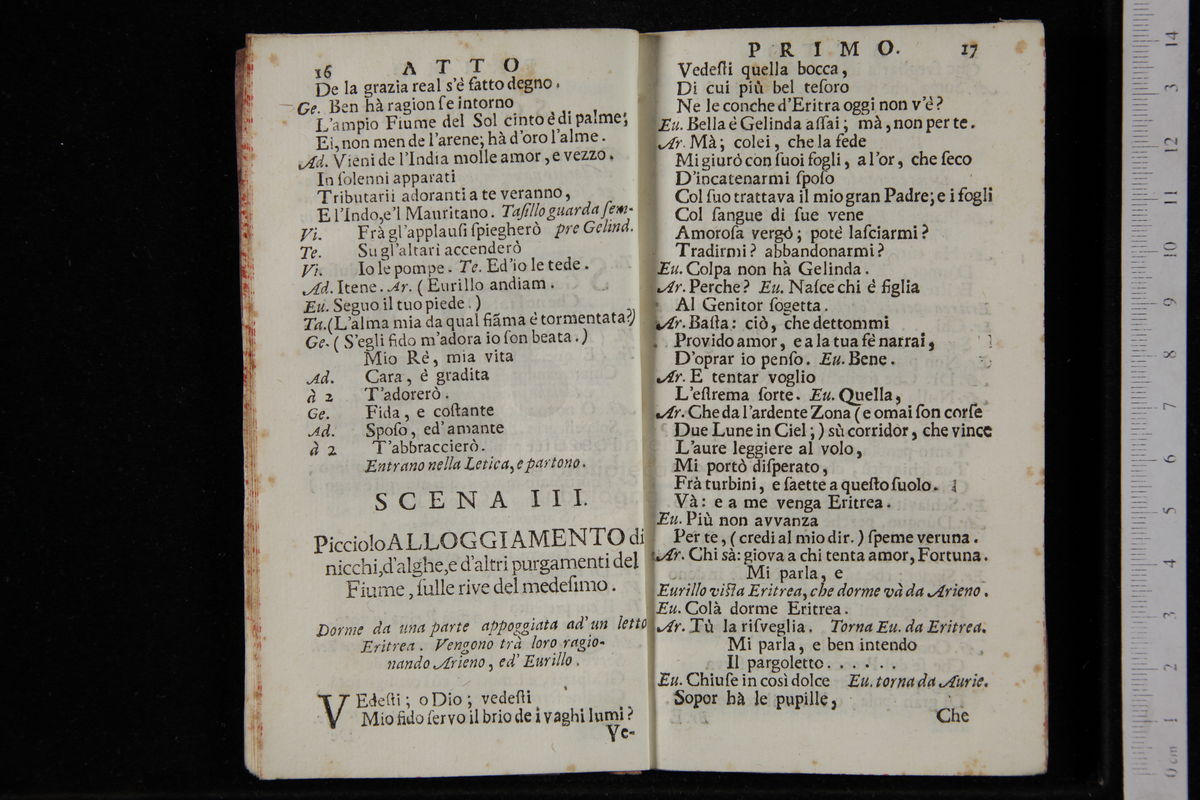 16 ATTO
De la grazia real s'è fatto degno.
Ge. Ben hà ragion ſe intorno
L'ampio Fiume del Sol cinto è di palme;
Ei, non men de l'arene; hà d'oro l'alme.
Ad. Vieni de l'India molle amor, e vezzo.
In ſolenni apparati
Tributarii adoranti a te veranno,
E l'Indo, e'l Mauritano. Taſillo guarda ſem-
Vi. Frà gl'applauſi ſpiegherò pre Gelind.
Te. Su gl'altari accenderò
Vi. Io le pompe. Te. Ed'io le tede.
Ad. Itene. Ar. (Eurillo andiam.
Eu. Seguo il tuo piede.)
Ta. (L'alma mia da qual fiãma è tormentata?)
Ge. (S'egli fido m'adora io ſon beata.)
Mio Rè, mia vita
Ad. Cara, è gradita
à 2 T'adorerò.
Ge. Fida, e coſtante
Ad. Spoſo, ed'amante
à 2 T'abbraccierò.
Entrano nella Letica, e partono.
SCENA III.
Picciolo ALLOGGIAMENTO di
nicchi, d'alghe, e d'altri purgamenti del
Fiume, ſulle rive del medeſimo.
Dorme da una parte appoggiata ad'un letto
Eritrea. Vengono trà loro ragio-
nando Arieno, ed' Eurillo.
VEdeſti; o Dio; vedeſti
Mio fido ſervo il brio de i vaghi lumi?
Ve-
PRIMO. 17
Vedeſti quella bocca,
Di cui più bel teſoro
Ne le conche d'Eritra oggi non v'è?
Eu. Bella è Gelinda aſſai; mà, non per te.
Ar. Mà; colei, che la fede
Mi giurò con ſuoi fogli, a l'or, che ſeco
D'incatenarmi ſpoſo
Col ſuo trattava il mio gran Padre; e i fogli
Col ſangue di ſue vene
Amoroſa vergò; potè laſciarmi?
Tradirmi? abbandonarmi?
Eu. Colpa non hà Gelinda.
Ar. Perche? Eu. Naſce chi è figlia
Al Genitor ſogetta.
Ar. Baſta: ciò, che dettommi
Provido amor, e a la tua fè narrai,
D'oprar io penſo. Eu. Bene.
Ar. E tentar voglio
L'eſtrema ſorte. Eu. Quella,
Ar. Che da l'ardente Zona (e omai ſon corſe
Due Lune in Ciel;) sù corridor, che vince
L'aure leggiere al volo,
Mi portò diſperato,
Frà turbini, e ſaette a queſto ſuolo.
Và: e a me venga Eritrea.
Eu. Più non avvanza
Per te, (credi al mio dir.) ſpeme veruna.
Ar. Chi sà: giova a chi tenta amor, Fortuna.
Mi parla, e
Eurillo viſta Eritrea, che dorme và da Arieno.
Eu. Colà dorme Eritrea.
Ar. Tù la riſveglia. Torna Eu. da Eritrea.
Mi parla, e ben intendo
Il pargoletto. . . . . .
Eu. Chiuſe in così dolce Eu. torna da Aurie.
Sopor hà le pupille,
Che
14
13
12
11
10
9
8
7
6
5
4
3
2
1
0 cm